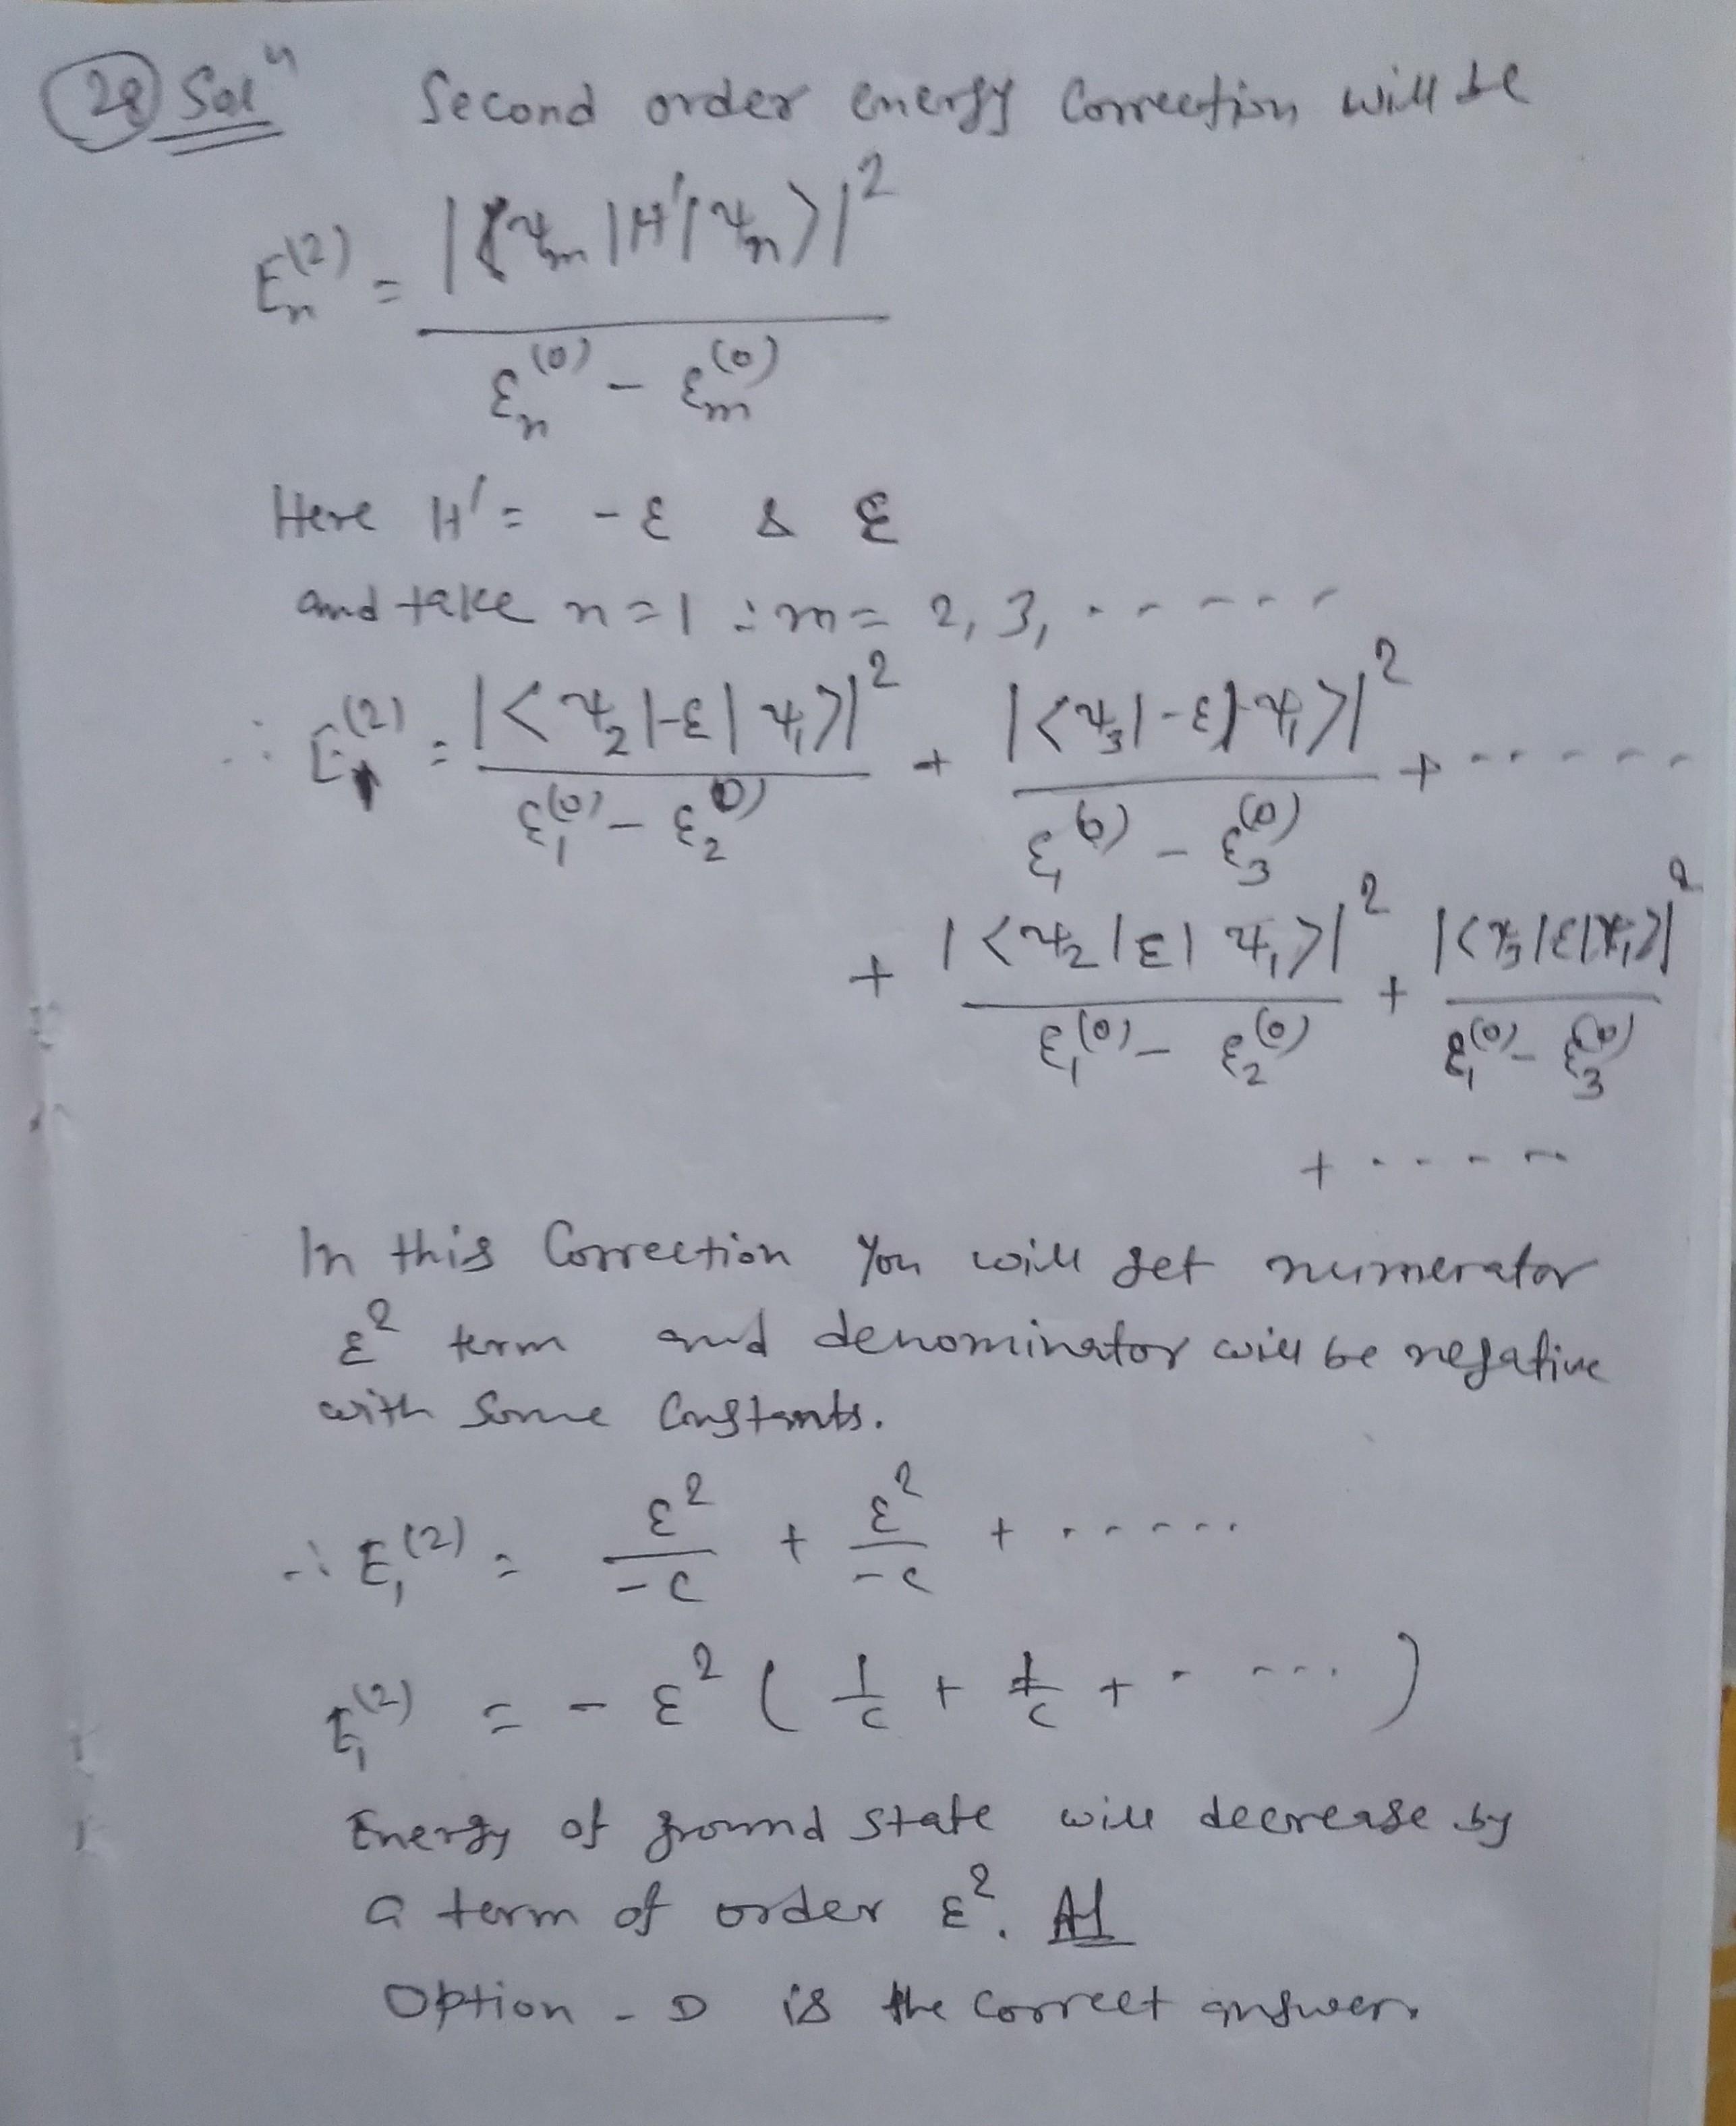 28 Solⁿ Second order energy Correction will be
E_n^(2) = |⟨ψ_m|H'|ψ_n⟩|^2 / (ε_n^(0) - ε_m^(0))
Here H' = -ε & ε
and take n=1 ∴ m= 2, 3, - - - - -
∴ E_1^(2) = |<ψ_2|-ε|ψ_1>|^2 / (ε_1^(0) - ε_2^(0)) + |<ψ_3|-ε|ψ_1>|^2 / (ε_1^(0) - ε_3^(0)) + - - - - -
+ |<ψ_2|ε|ψ_1>|^2 / (ε_1^(0) - ε_2^(0)) + |<ψ_3|ε|ψ_1>|^2 / (ε_1^(0) - ε_3^(0))
+ - - - - -
In this Correction You will get numerator
ε^2 term and denominator will be negative
with some Constants.
∴ E_1^(2) = ε^2/-c + ε^2/-c + - - - - -
E_1^(2) = - ε^2 ( 1/c + 1/c + - - - - )
Energy of ground state will decrease by
a term of order ε^2. A
Option - D is the correct answer.